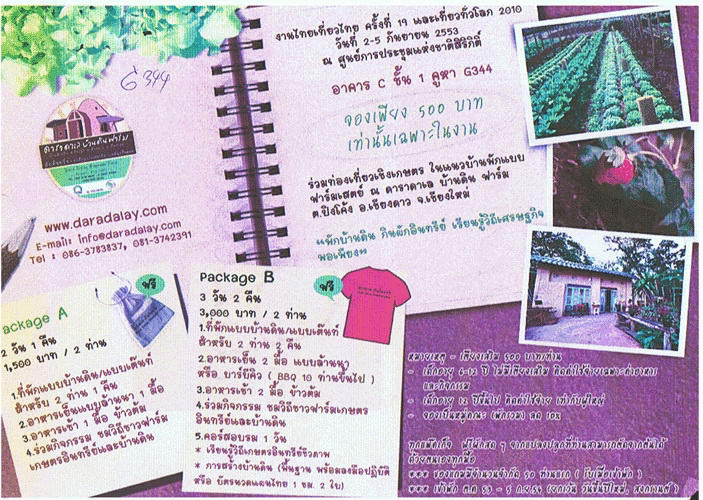 งานไทยเที่ยวไทย ครั้งที่ 19 และเที่ยวทั่วโลก 2010
วันที่ 2-5 กันยายน 2553
ณ ศูนย์การประชุมแห่งชาติสิริกิติ์
อาคาร C ชั้น 1 คูหา G344
จองเพียง 500 บาท
เท่านั้นเฉพาะในงาน
ร่วมท่องเที่ยวเชิงเกษตร ในแนวบ้านพักแบบ
ฟาร์มเสตย์ ณ ดาราดาเล บ้านดิน ฟาร์ม
ต.ปิงโค้ง อ.เชียงดาว จ.เชียงใหม่
"พักบ้านดิน กินผักอินทรีย์ เรียนรู้วิถีเศรษฐกิจ
พอเพียง"
G344
ดาราดาเล บ้านดินฟาร์ม
www.daradalay.com
E-mail: info@daradalay.com
Tel : 086-3783837, 081-3742391
ฟรี
ackage A
2 วัน 1 คืน
1,500 บาท / 2 ท่าน
1.ที่พักแบบบ้านดิน/แบบเต๊นท์
สำหรับ 2 ท่าน 1 คืน
2.อาหารเย็นแบบล้านนา 1 มื้อ
3.อาหารเช้า 1 มื้อ ข้าวต้ม
4.ร่วมกิจกรรม ชมวิถีชาวฟาร์ม
เกษตรอินทรีย์และบ้านดิน
ฟรี
Package B
3 วัน 2 คืน
3,000 บาท / 2 ท่าน
1.ที่พักแบบบ้านดิน/แบบเต๊นท์
สำหรับ 2 ท่าน 2 คืน
2.อาหารเย็น 2 มื้อ แบบล้านนา
หรือ บาร์บีคิว ( BBQ 10 ท่านขึ้นไป )
3.อาหารเช้า 2 มื้อ ข้าวต้ม
4.ร่วมกิจกรรม ชมวิถีชาวฟาร์มเกษตร
อินทรีย์และบ้านดิน
5.คอร์สอบรม 1 วัน
* เรียนรู้วิถีเกษตรอินทรีย์ชีวภาพ
* การสร้างบ้านดิน (พื้นฐาน พร้อมลงมือปฏิบัติ
หรือ บัตรนวดแผนไทย 1 ชม. 2 ใบ)
หมายเหตุ - เตียงเสริม 500 บาท/ท่าน
- เด็กอายุ 6-12 ปี ไม่มีเตียงเสริม คิดค่าใช้จ่ายเฉพาะค่าอาหาร
และกิจกรรม
- เด็กอายุ 12 ปีขึ้นไป คิดค่าใช้จ่าย เท่ากับผู้ใหญ่
- จองเป็นหมู่คณะ ลด 10%